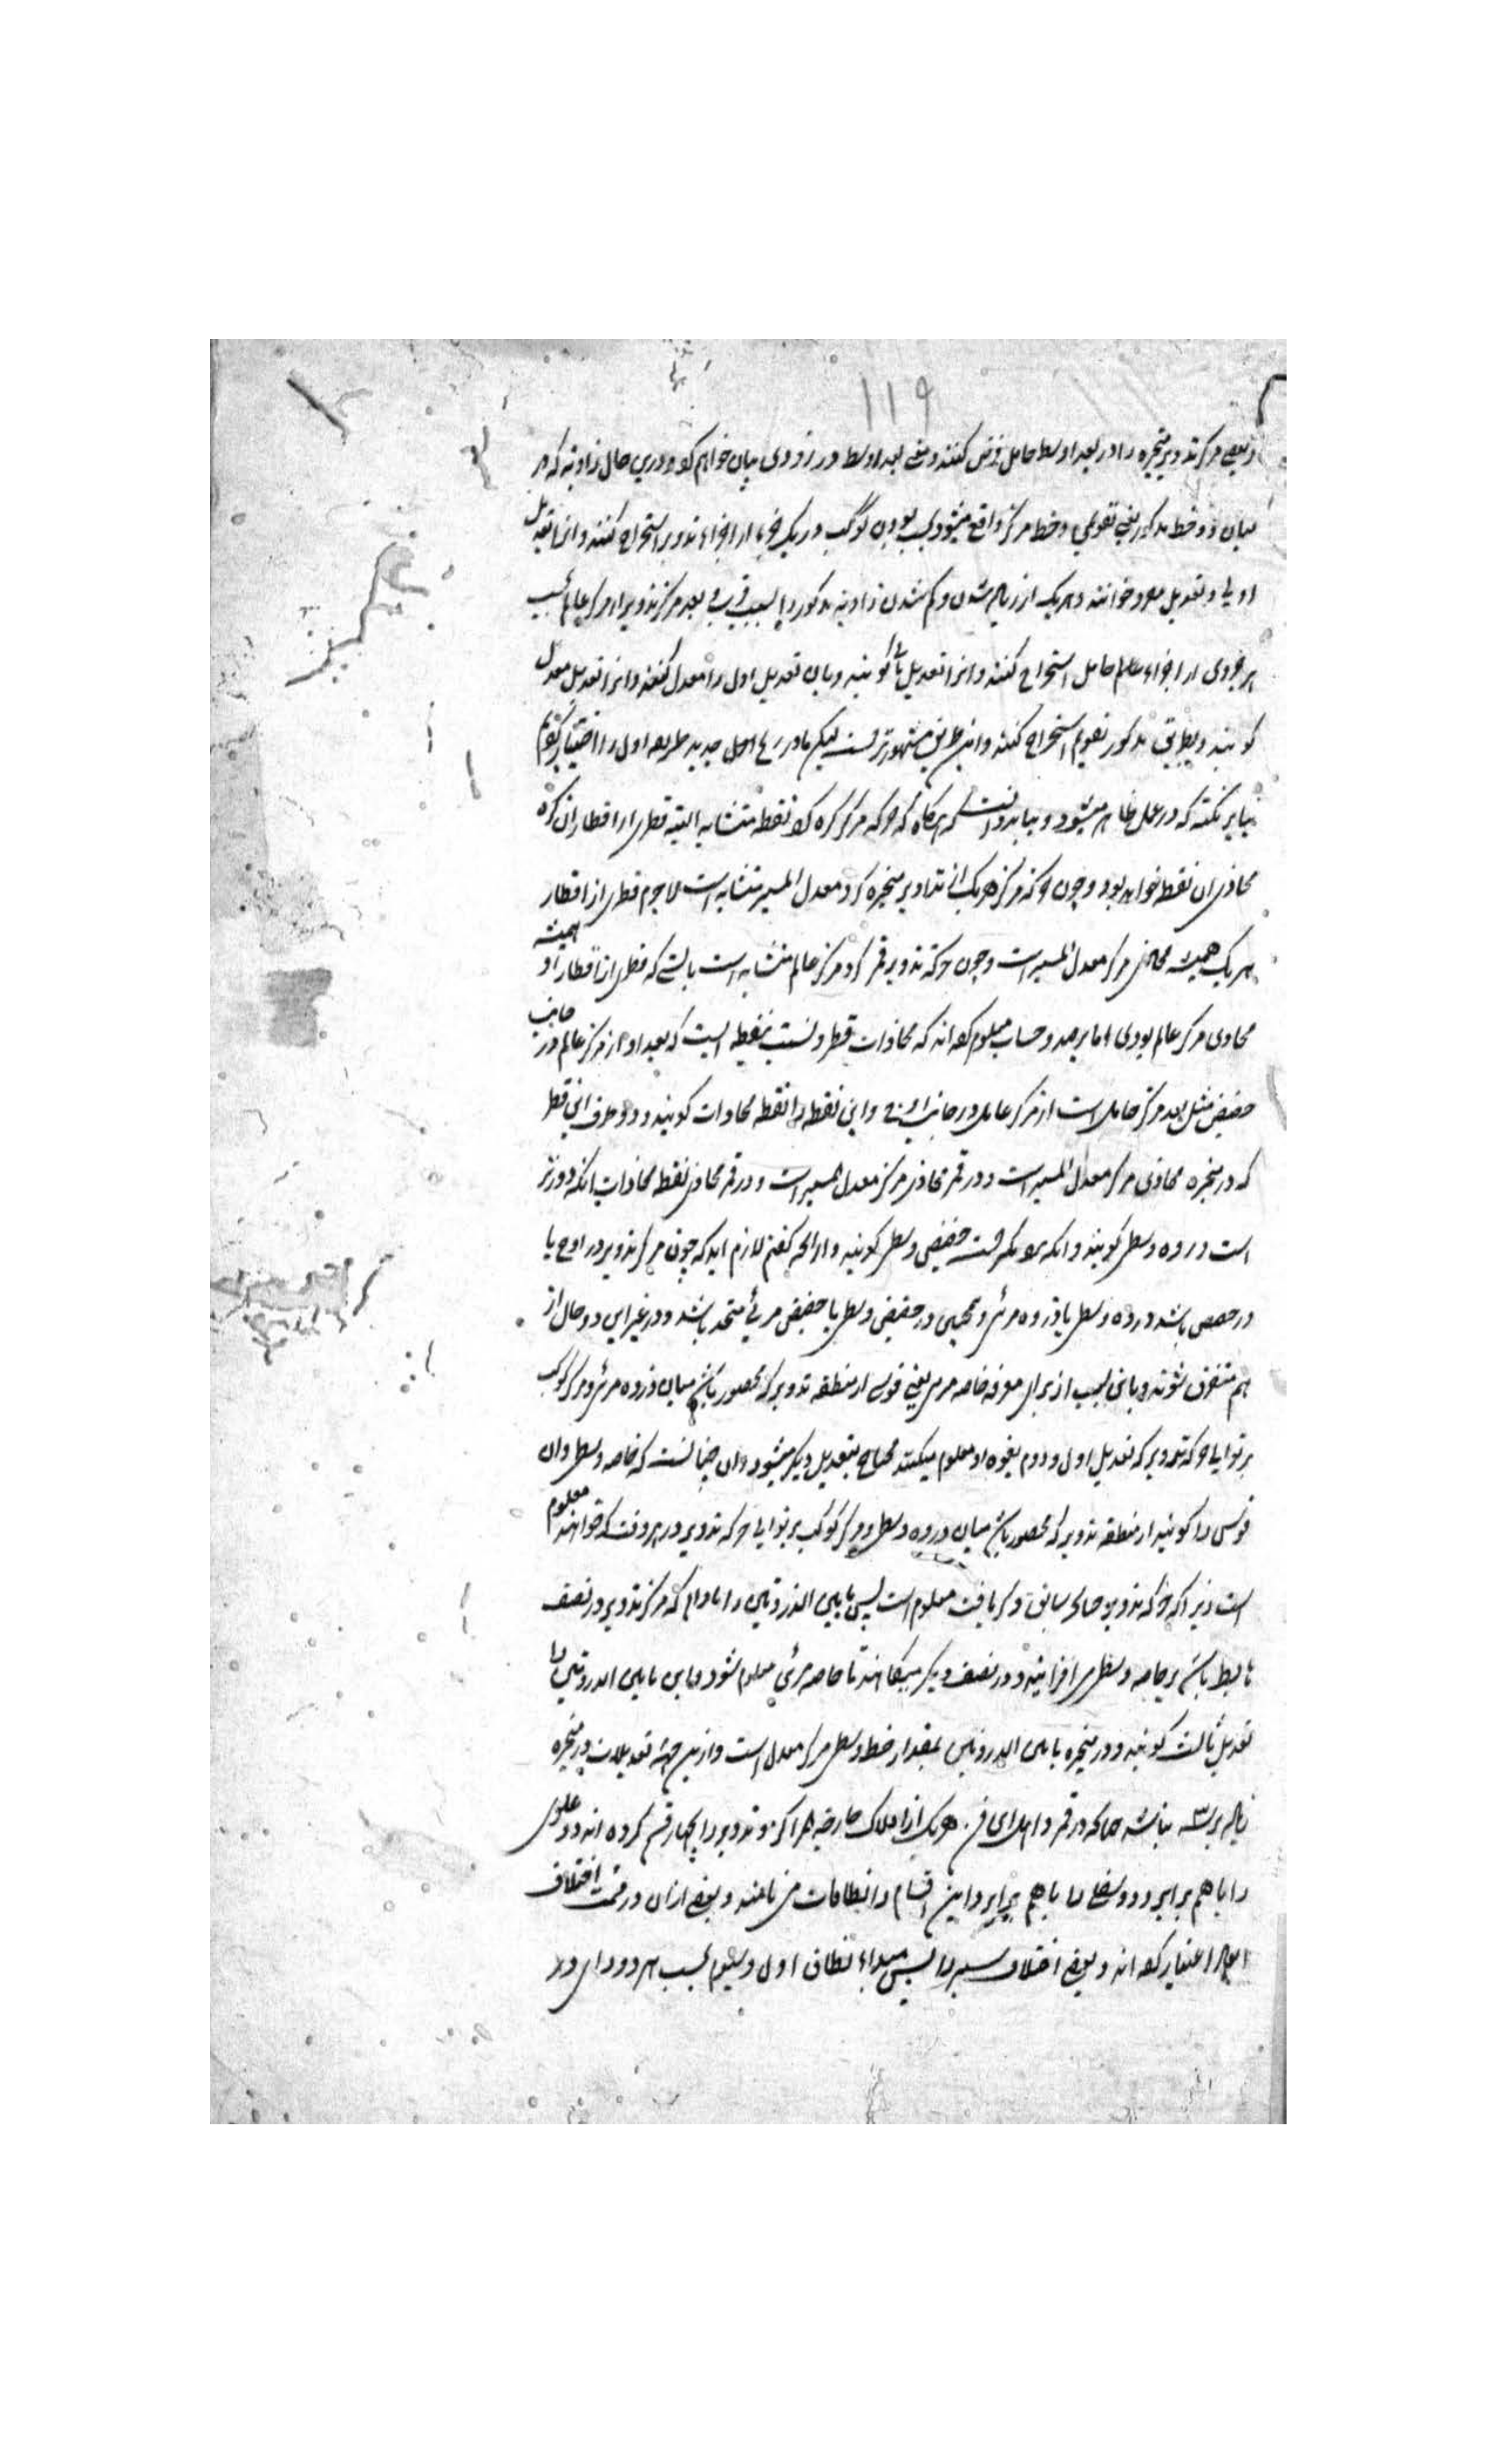 ۱۱۹
و بعضی مرکز تدویر متحیره را در بعد اوسط حامل فرض کنند و معنی بعد اوسط در زودی بیان خواهم کرد و درین حال زاویه که در
میان دو خط مذکور یعنی تقویمی و خط مرکزی واقع میشود بسبب بودن کوکب در یک جزء از اجزاء تدویر استخراج کنند و انرا تعدیل
اول و تعدیل مفرد خوانند و هر یک از زیاده شدن و کم شدن زاویه مذکور را بسبب قرب و بعد مرکز تدویر از مرکز عالم بحسب
هر جزوی از اجزاء حامل استخراج کنند و انرا تعدیل ثانی کویند و بان تعدیل اول را معدل کنند و انرا تعدیل معدل
کویند و بطریق مذکور تقویم استخراج کنند و این طریق مشهورتر است لیکن ما در جدید طریقه اول را اختیار کردیم
بنابر نکته که در عمل ظاهر میشود و بباید دانست که هرگاه که حرکه مرکز کره کرد نقطه متشابه البته قطری از اقطار ان کره
محاذی ان نقطه خواهد بود و چون حرکه مرکز هر یک از تداویر متحیره کرد معدل المسیر متشابه است لاجرم قطری از اقطار
هر یک همیشه محاذی مرکز معدل المسیر است و چون حرکه تدویر قمر کرد مرکز عالم متشابه است بایستی که قطری از اقطار او همیشه
محاذی مرکز عالم بودی اما برصد و حساب معلوم کرده اند که محاذات قطر و نسبت بنقطه ایست که بعد او از مرکز عالم در جانب
حضیض مثل بعد مرکز حامل است از مرکز عالم در جانب اوج و این نقطه را نقطه محاذات کویند و دو طرف این قطر
که در متحیره محاذی مرکز معدل المسیر است و در قمر محاذی مرکز معدل المسیر است و در قمر محاذی نقطه محاذات انکه دورتر
است ذروه وسطی کویند و انکه نزدیکتر است حضیض وسطی کویند و از انچه کفتیم لازم اید که چون مرکز تدویر در اوج یا
در حضیض باشد ذروه وسطی با ذروه مرئی و همچنین حضیض وسطی با حضیض مرئی متحد باشد و در غیر این دو حال از
هم متفرق شوند و باین سبب از برای معرفه خاصه مرئی یعنی قوسی از منطقه تدویر که محصور باشد میان ذروه مرئی و مرکز کوکب
بر توالی حرکه تدویر که تعدیل اول و دوم بقوه او معلوم میکنند محتاج بتعدیل دیکر میشود و ان چنانست که خاصه وسطی و ان
قوسی را کویند از منطقه تدویر که محصور باشد میان ذروه وسطی و مرکز کوکب بر توالی حرکه تدویر در هر وقت که خواهند معلوم
است زیرا که حرکه تدویر سابق ذکر یافت معلوم است پس مابین الذروتین را مادام که مرکز تدویر در نصف
هابط باشد بر خاصه وسطی می افزایند و در نصف دیکر میکاهند تا خاصه مرئی معلوم شود و این مابین الذروتین را
تعدیل ثالث کویند و در متحیره مابین الذروتین بمقدار خط وسطی مرکز معدل است و ازین جهة تعدیلات در متحیره
زیاده بر سه نباشد چنانکه در قمر و اهل این فن هر یک از افلاک خارجة المراکز و تدویر را بچهار قسم کرده اند دو علوی
را با هم برابر و دو سفلی را با هم برابر و این اقسام را نطاقات می نامند و بعضی ازان در قسمت اختلاف
ابعاد را اعتبار کرده اند و بعضی اختلاف سیر را پس مبداء نطاق اول و سیوم بحسب هر دو رای